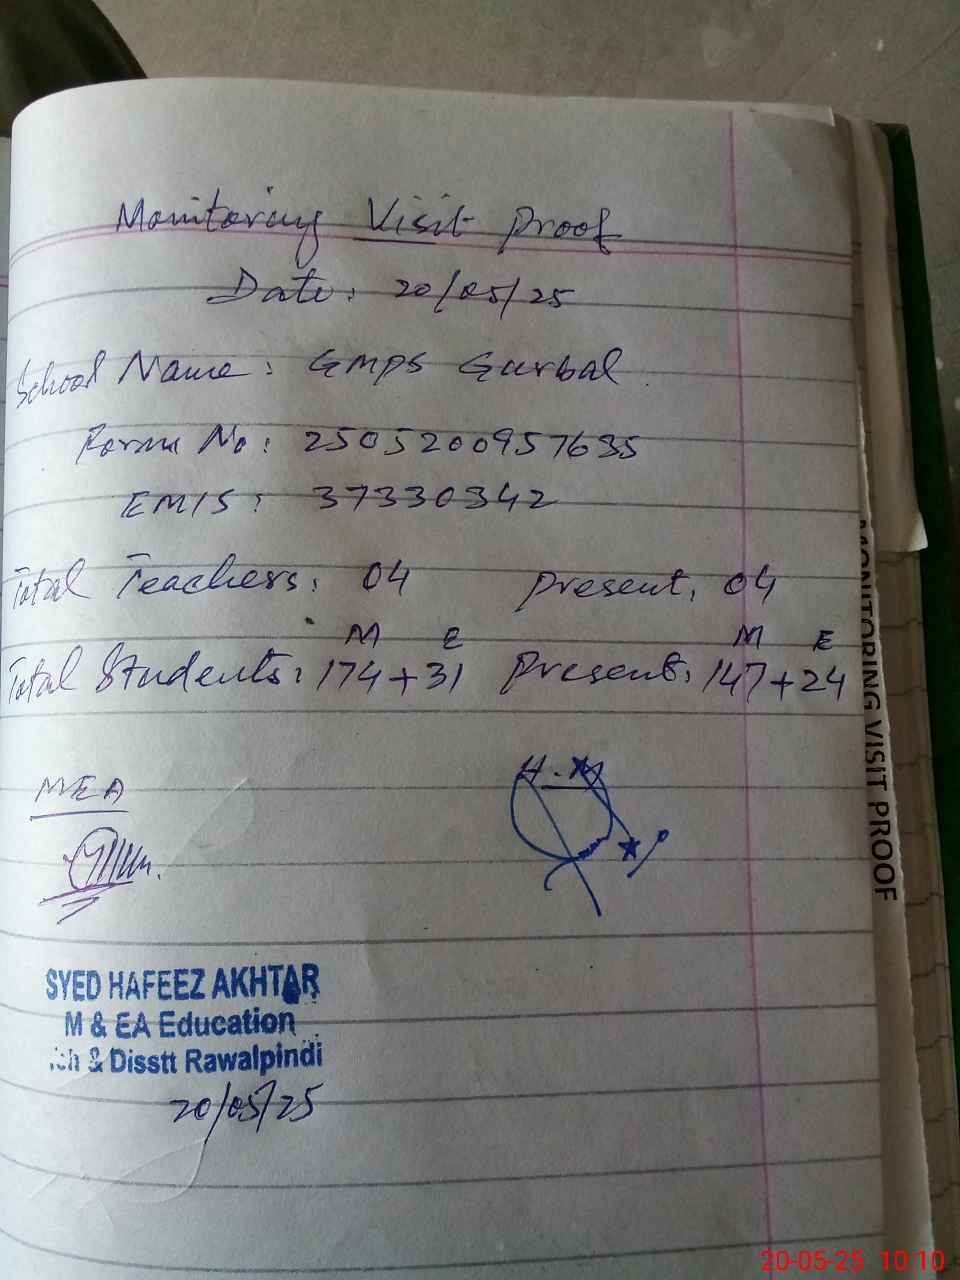 Monitoring Visit Proof
Date: 20/05/25
School Name: GMPS Gurbal
Form No: 2505200957635
EMIS: 37330342
Total Teachers: 04 Present: 04
M E M E
Total Students: 174+31 Present: 147+24
MEA H.M
SYED HAFEEZ AKHTAR
M & EA Education
& Disstt Rawalpindi
20/05/25
MONITORING VISIT PROOF
20-05-25 10:10